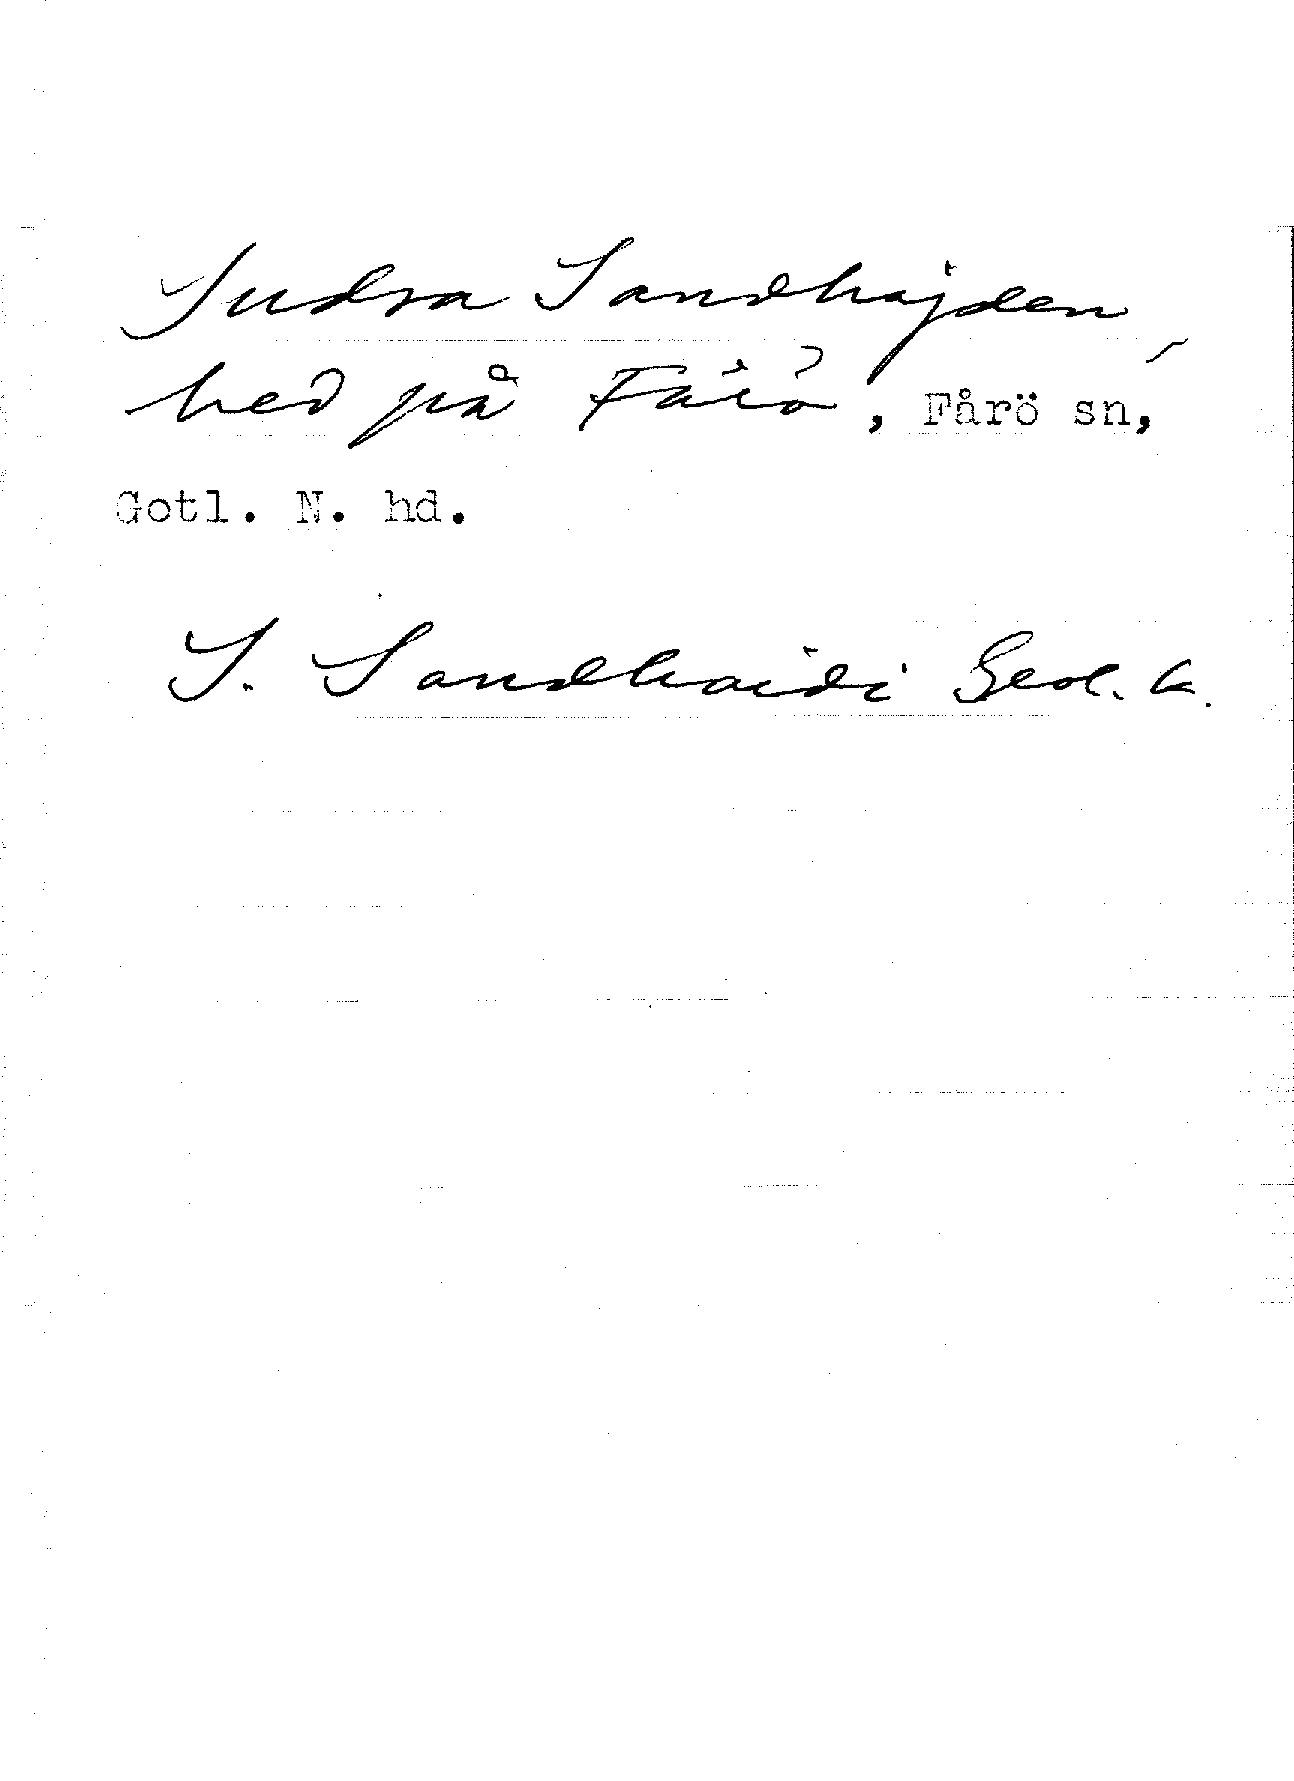 Sudra Sandhäjden,
hed på Fårö, Fårö sn,
Gotl. N. hd.
S. Sandhaidi Geol. k.